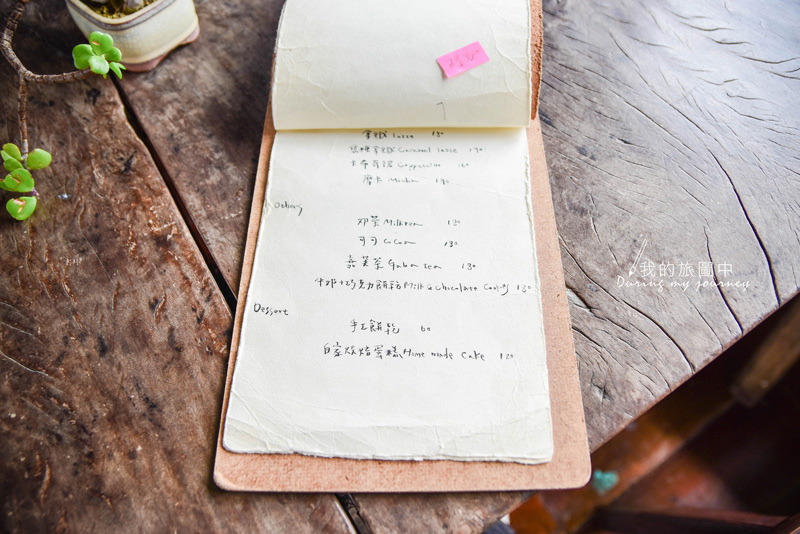 拿鐵 Latte 130
焦糖拿鐵 Caramel latte 130
卡布奇諾 Cappuccino
摩卡 Mocha 130
Others
奶茶 Milktea 130
可可 Cocoa 130
嘉葉茶 Gaba tea 130
牛奶+巧克力餅乾 Milk & Chocolate 130
Dessert
手工餅乾 60
自家烘焙蛋糕 Home made Cake 120
我的旅圖中
During my journey